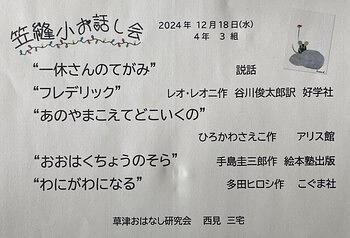 笠縫小お話し会
2024年 12月18日(水)
4年 3組
“一休さんのてがみ” 説話
“フレデリック” レオ・レオニ作 谷川俊太郎訳 好学社
“あのやまこえてどこいくの”
ひろかわさえこ作 アリス館
“おおはくちょうのそら” 手島圭三郎作 絵本塾出版
“わにがわになる” 多田ヒロシ作 こぐま社
草津おはなし研究会 西見 三宅